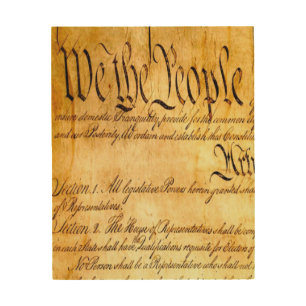 We the People
insure domestic Tranquility, provide for the common
and our Posterity, do ordain and establish this Constitu
Arti
Section. 1. All legislative Powers herein granted sha
of Representatives.
Section. 2. The House of Representatives shall be comp
in each State shall have the Qualifications requisite for Electors of
No Person shall be a Representative who shall not